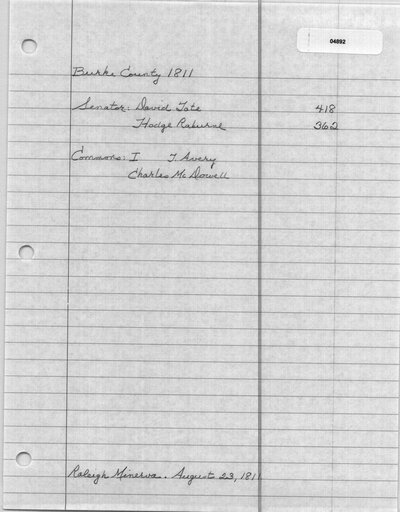 04892
Burke County 1811
Senator: David Tate 418
Hodge Raburne 362
Commons: I T. Avery
Charles McDowell
Raleigh Minerva. August 23, 1811